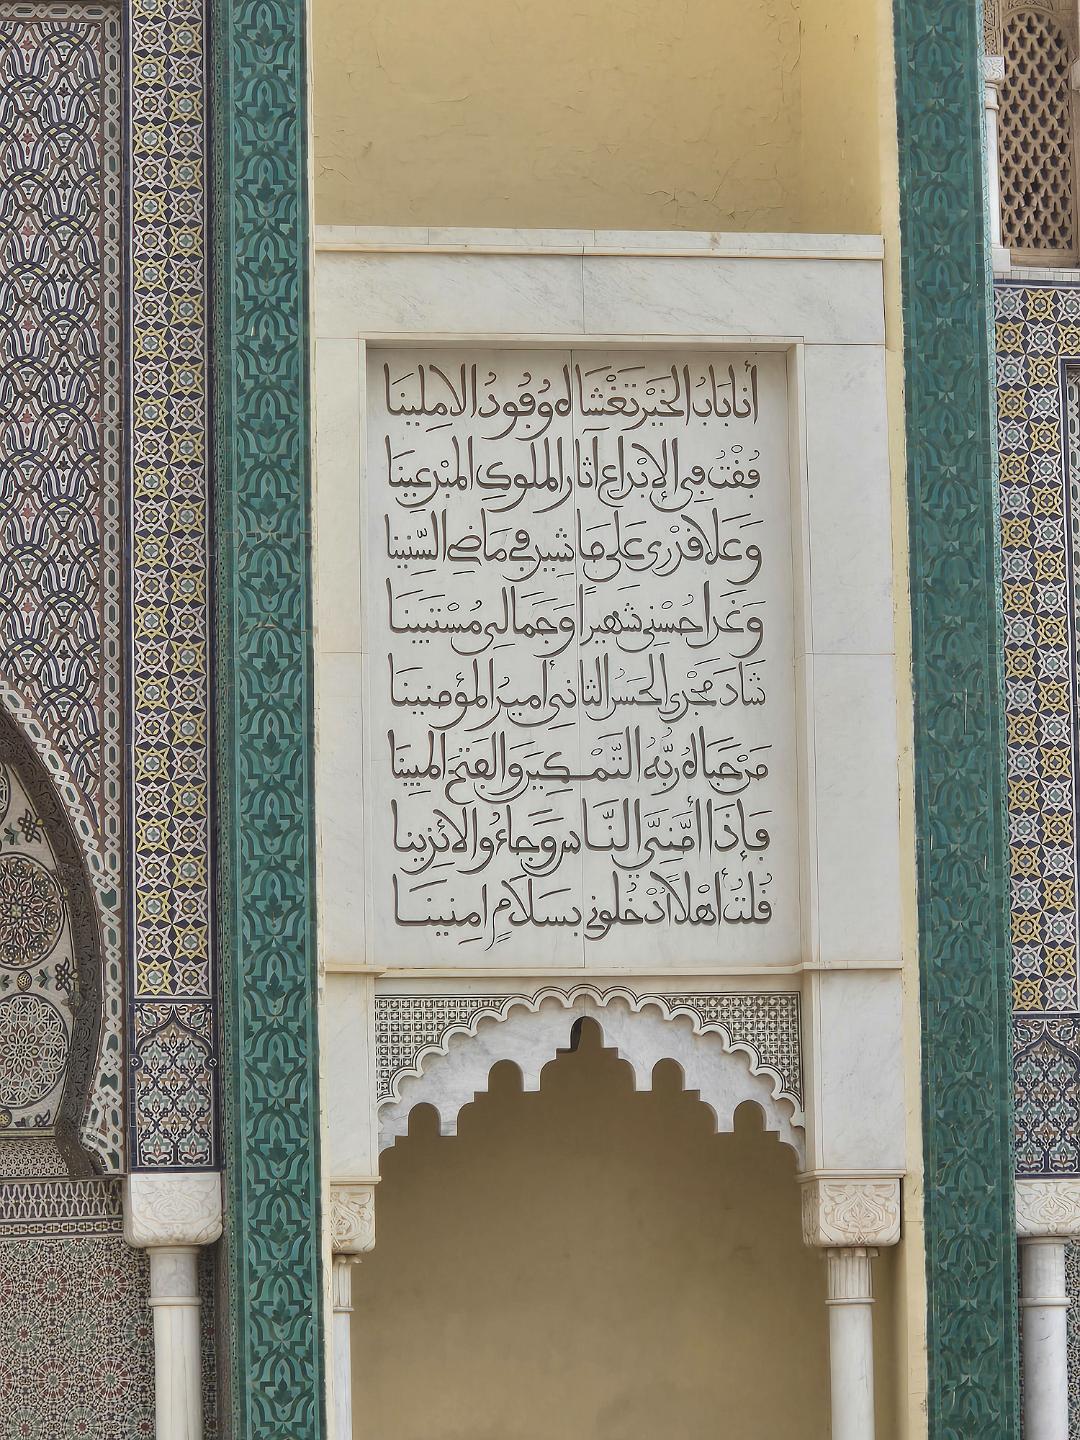 أنا باب الخير تغشاه وفود الاملينا
فقت في الإبداع آثار الملوك المبدعينا
وعلا قدري على ما شيد في ماضي السنينا
وغدا حسني شهيرا وجمالي مستبينا
شاد مجدي الحسن الثاني امير المؤمنينا
مرحبا له ربه التمكين والفتح المبينا
فإذا أمني الناس وجاءوا لائذينا
قلت أهلا أدخلوني بسلام امنينا